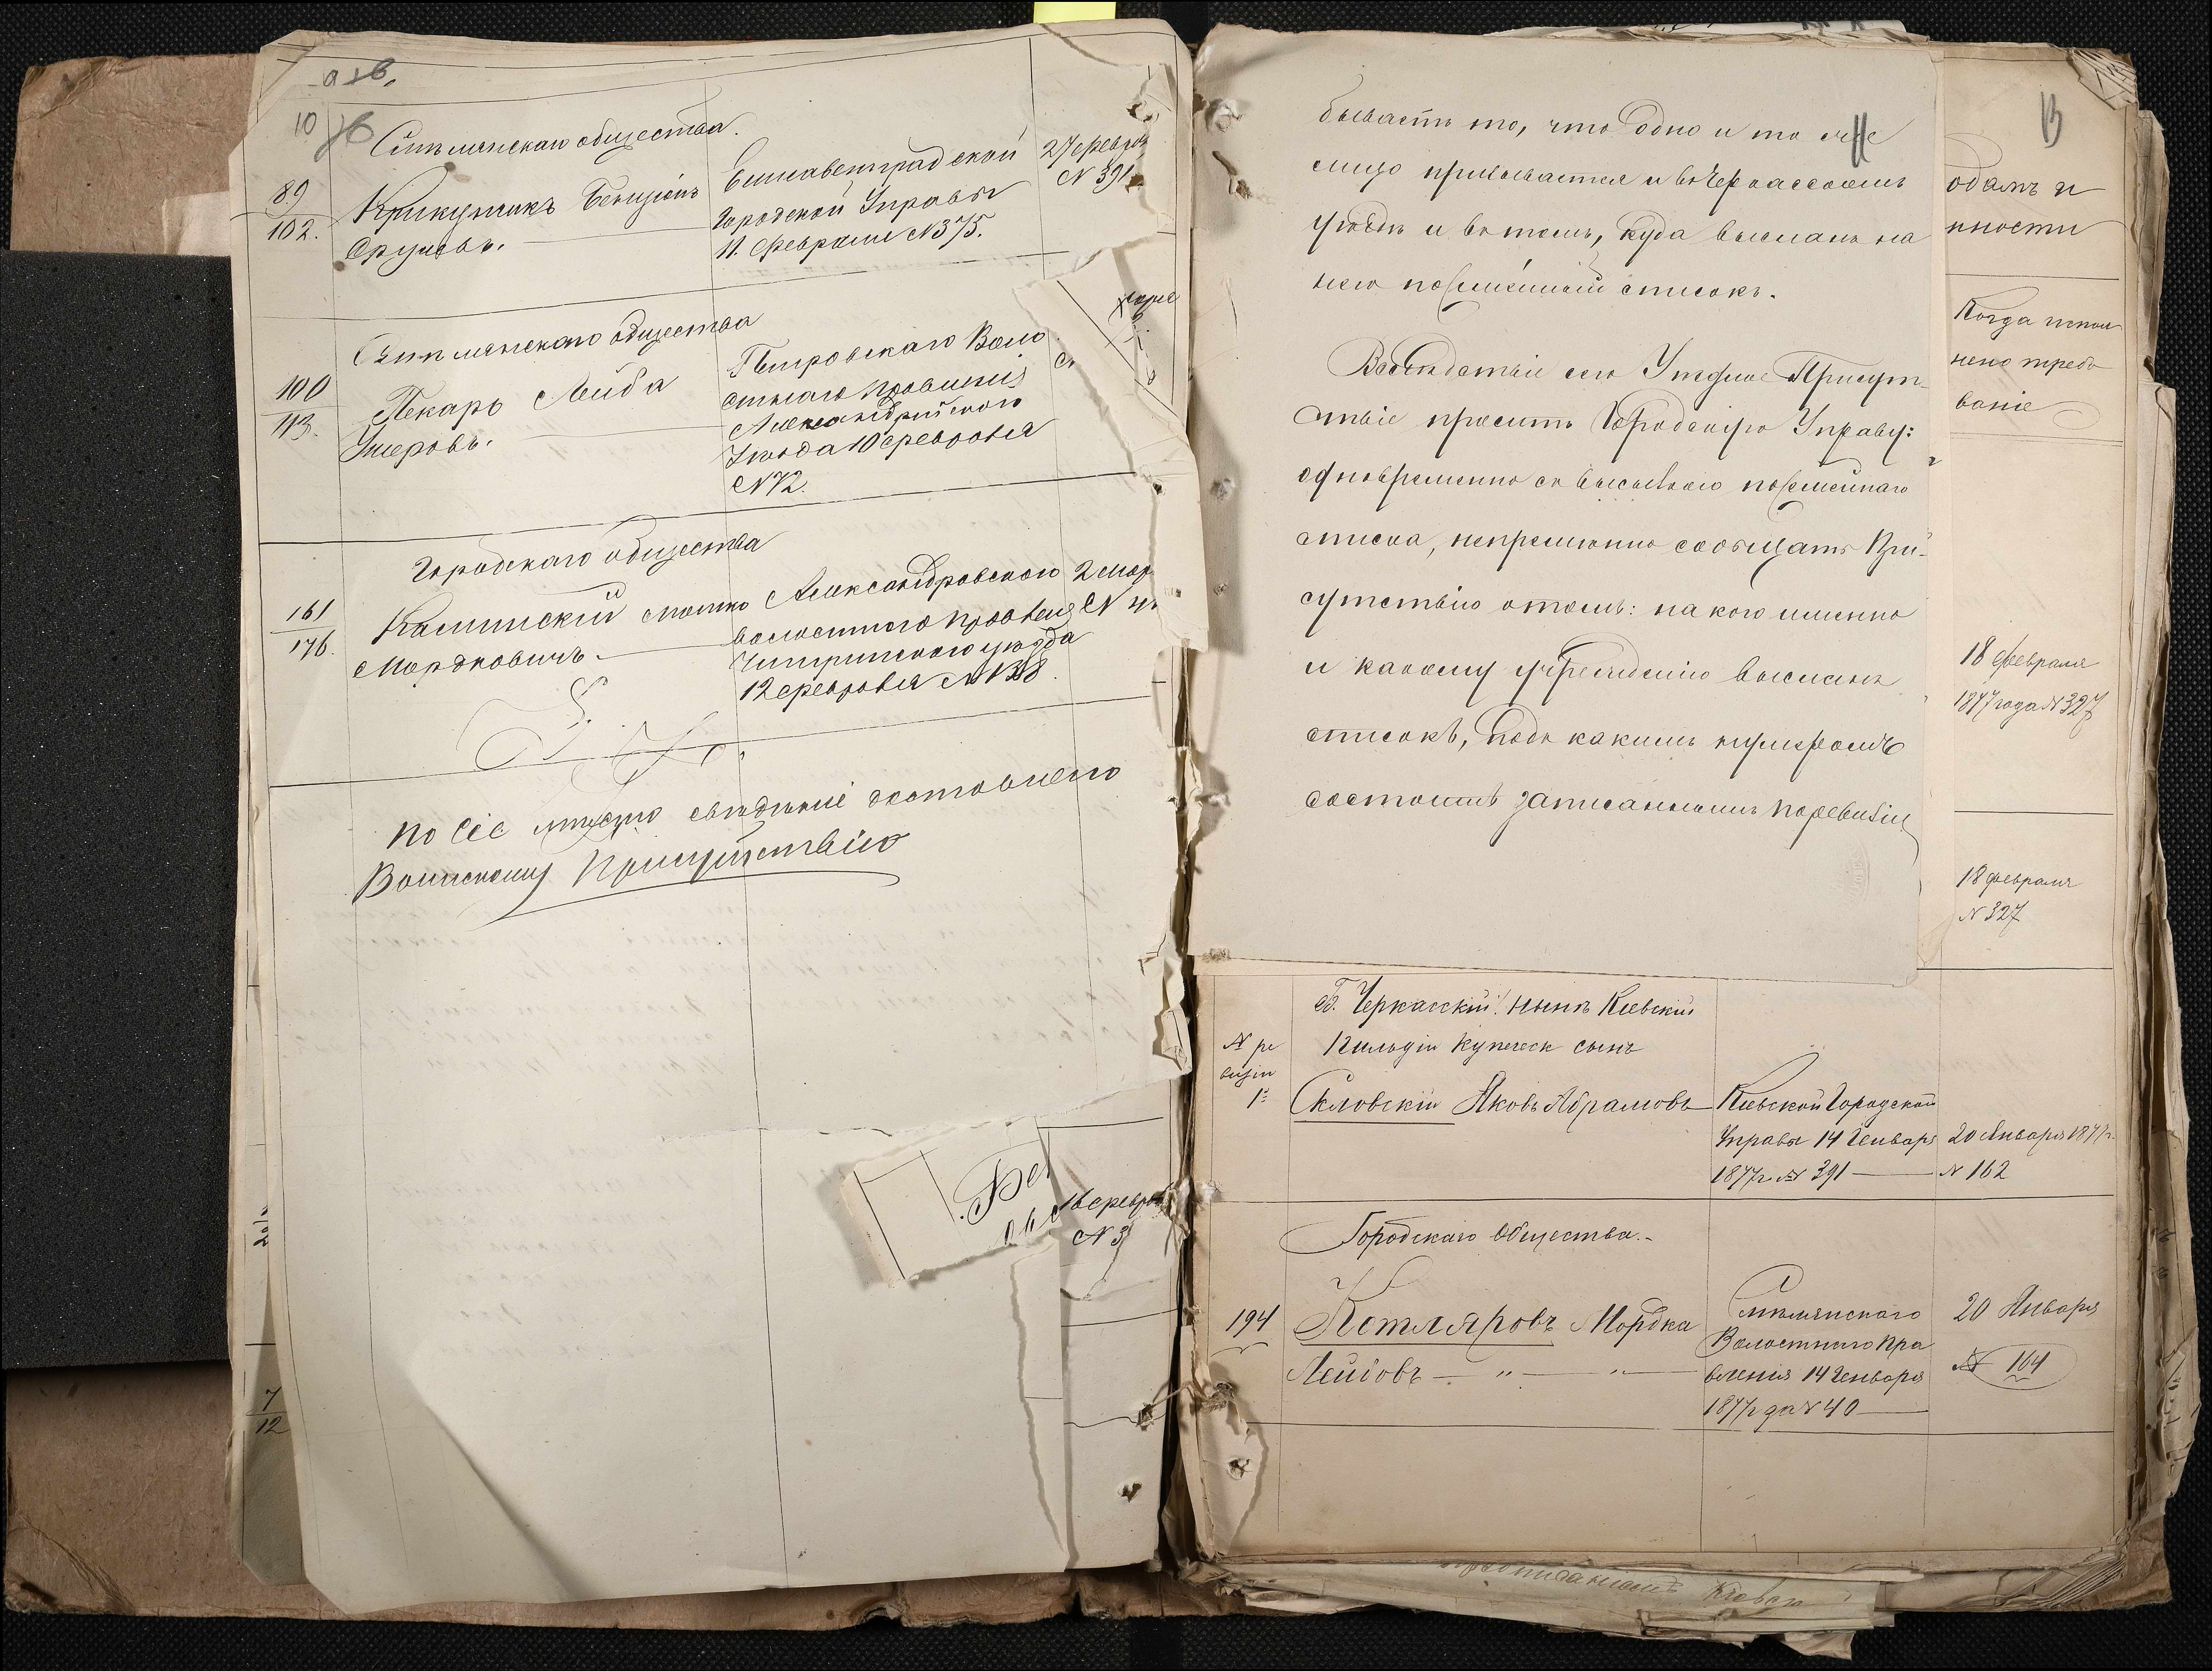 10
Смѣлянскаго общества.
89
102.
Крикуникъ Бенціонъ
Сруловъ.
Елисаветградской
Городской Управы
11. Февраля №375.
27 февра
№ 391
Смѣлянскаго общества
100
113.
Пекарь Лейба
Умеровъ.
Петровскаго Воло
стнаго правленія
Александрійского
Уезда 10 февраля
№72.
Городскаго общества
161
176.
Каминскій Мотко
Мордковичъ.
Александровского
волостного правленія
Чигиринскаго уезда
12 февраля №
2 мар
по сіе число свѣдѣніе доставлено
Воинскому Присутствію
16 февра
№ 3
7
12
бываетъ то, что одно и то же
лицо призывается и въ Черкасскомъ
уѣздѣ и въ томъ, куда высланъ на
него посемейный списокъ.
Вслѣдствіе сего Уѣздное Присут-
ствіе проситъ Городскую Управу:
одновременно съ высылкою посемейнаго
списка, непременно сообщать При-
сутствію о томъ: на кого именно
и какому учрежденію высланъ
списокъ, подъ какимъ нумеромъ
состоитъ записаннымъ по ревизіи
13
одамъ и
нности
Когда испол
нено требо
ваніе
18 февраля
1877 года №327
18 февраля
№ 327
Б. Черкасскій: нынѣ Кіевскій
1 гильдіи купеческ сынъ
№ ре
визіи
1
Скловскій Яковъ Абрамовъ
Кіевской Городской
Управы 14 Генваря
1877 г. № 391
20 Января 1877 г.
№ 162
Городскаго Общества.
194
Котляровъ Мордка
Лейбовъ — " — "
Смѣлянскаго
Волостного Пра
вленія 14 Генваря
1877 года № 40
20 Января
№ 164